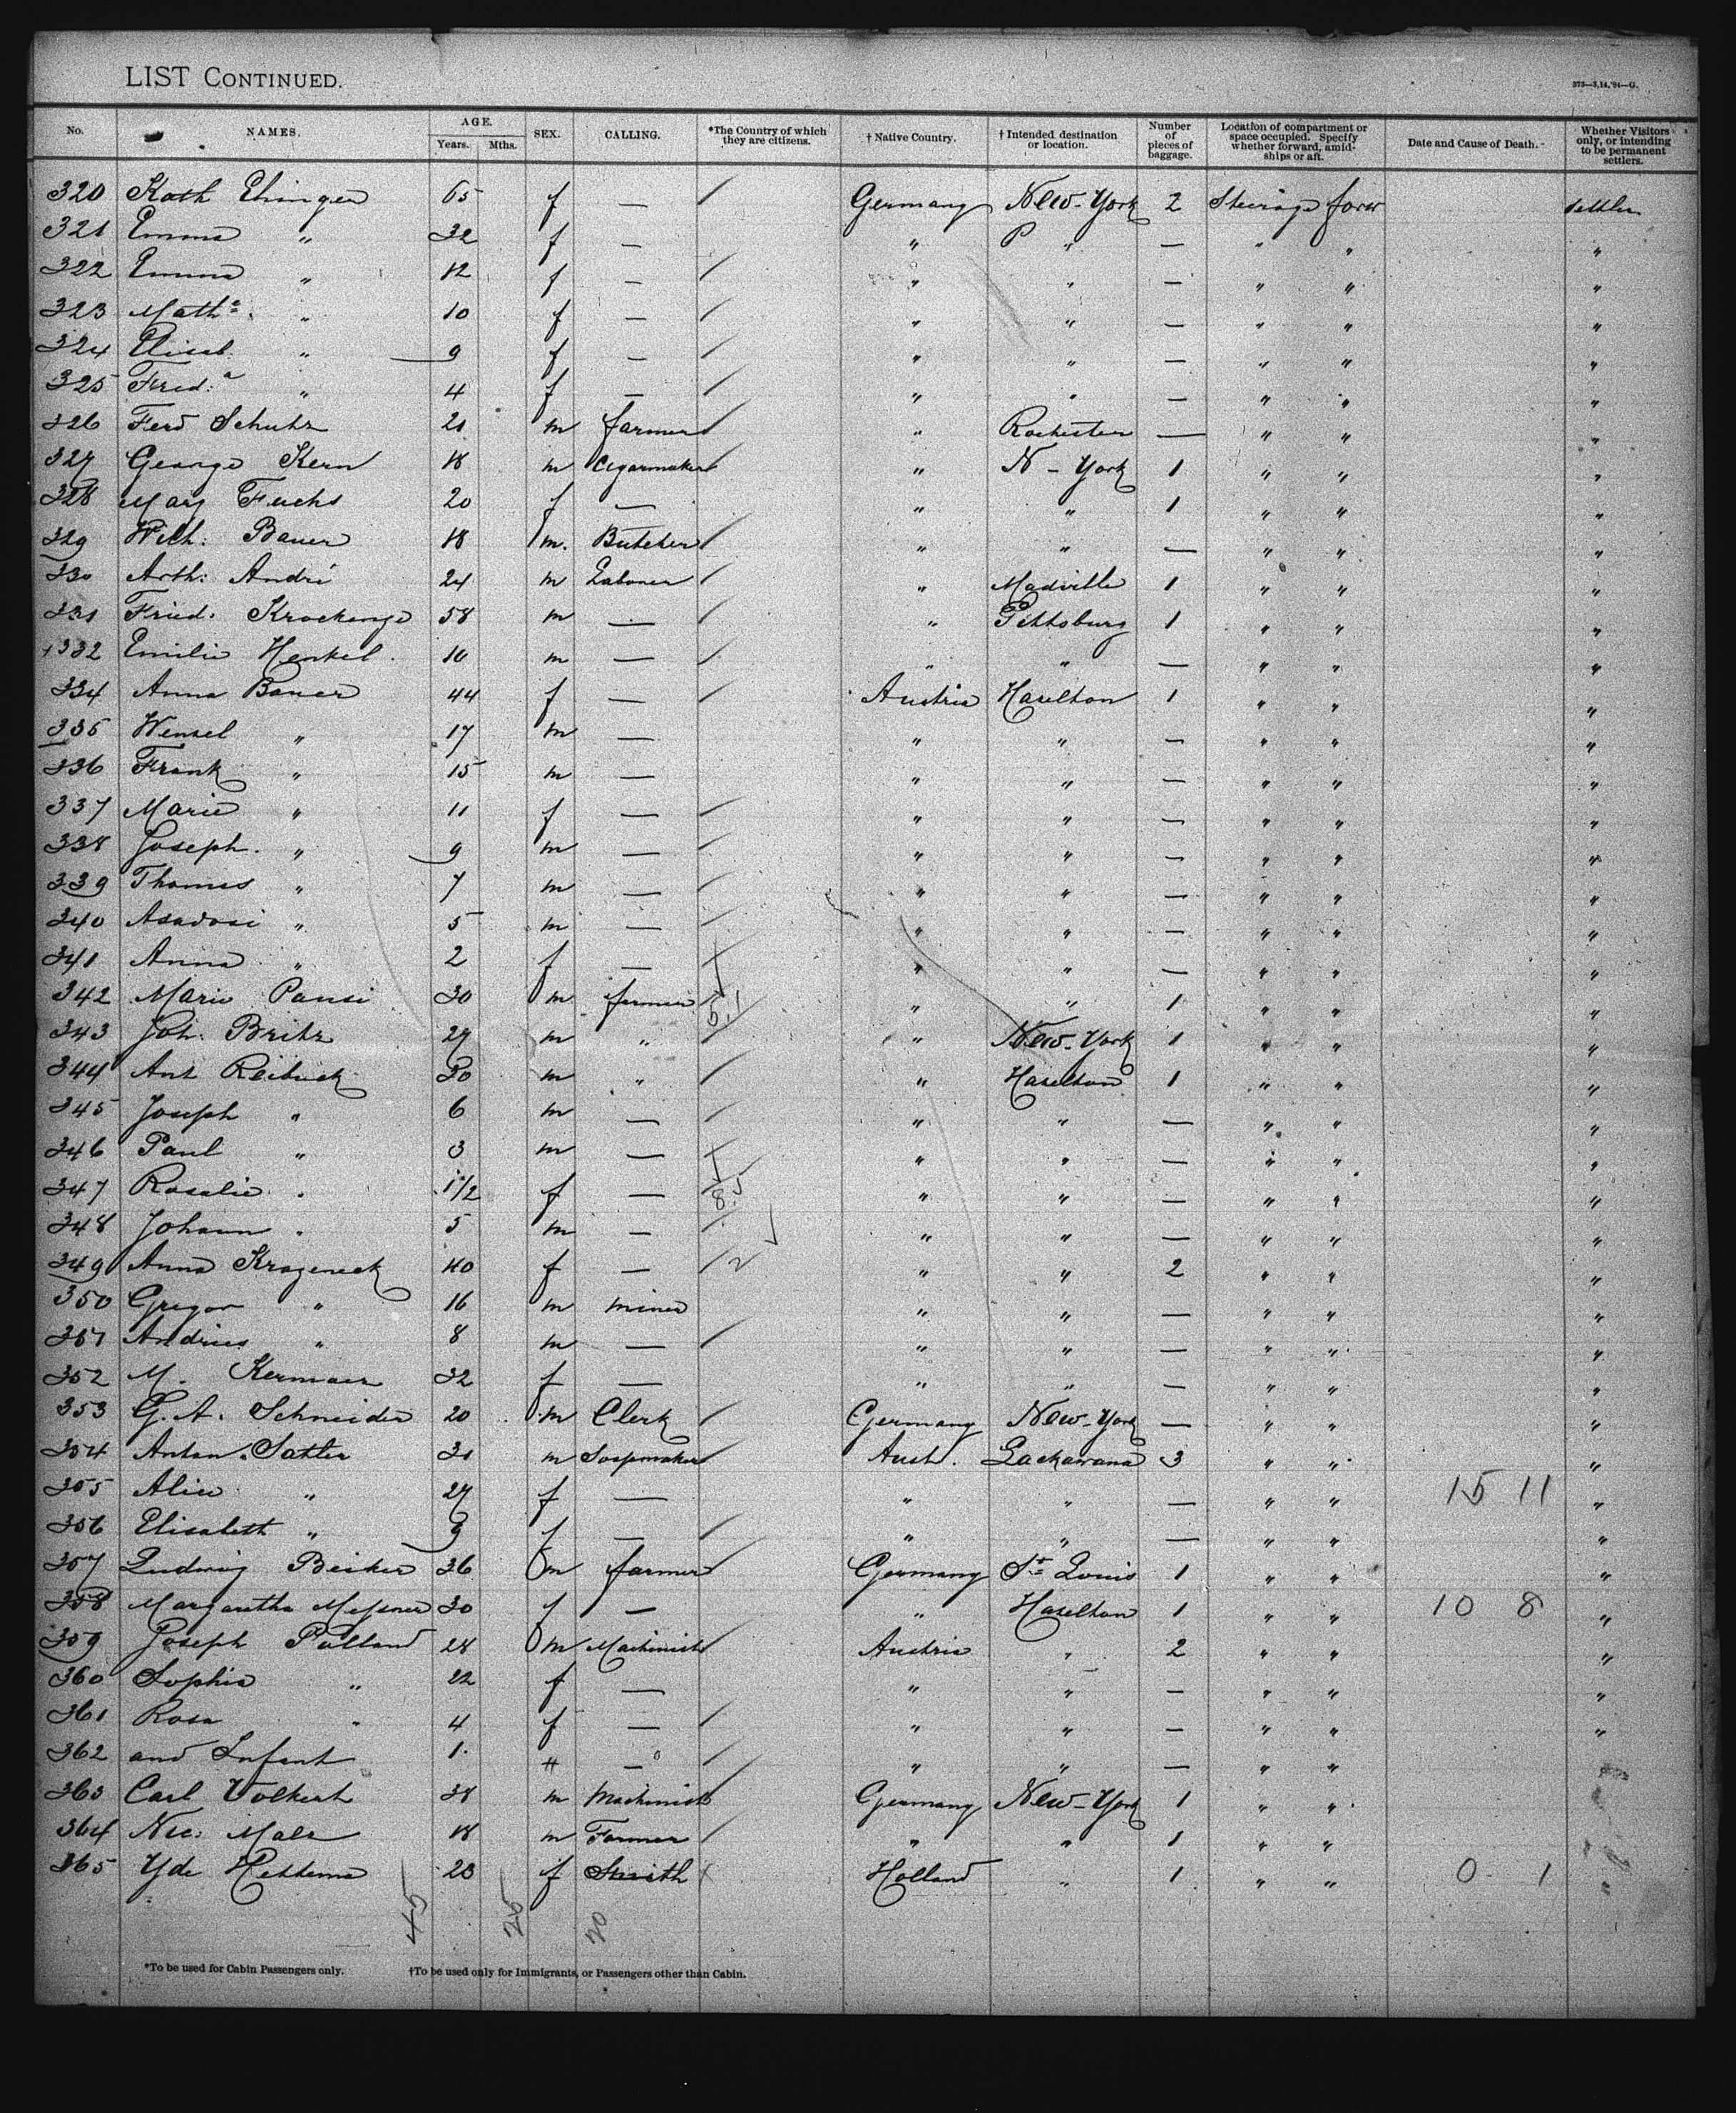 LIST CONTINUED.
273—3,14,'91—G.
No. NAMES. AGE. Years. Mths. SEX. CALLING. *The Country of which they are citizens. † Native Country. † Intended destination or location. Number of pieces of baggage. Location of compartment or space occupied. Specify whether forward, amidships or aft. Date and Cause of Death. Whether Visitors only, or intending to be permanent settlers.
320 Kath Ehinger 65 f — / Germany New-York 2 Steerage forw settler
321 Emma " 32 f — " P " — " " "
322 Emma " 12 f — / " " — " " "
323 Math:a " 10 f — / " " — " " "
324 Elisab. " 9 f — / " " — " " "
325 Fred:a " 4 f — / " " — " " "
326 Ferd Schuhr 21 m farmer / " Rochester — " " "
327 George Kern 18 m Cigarmaker / " N-York 1 " " "
328 Mary Fuchs 20 f — " " 1 " " "
329 Wilh: Bauer 18 m. Butcher / " " — " " "
330 Arth: André 24 m Laborer / " Madville 1 " " "
331 Fried. Krockenge 58 m — / " Pittsburg 1 " " "
332 Emilie Henkel. 10 m — / " " — " " "
334 Anna Bauer 44 f — / Austria Haselton 1 " " "
335 Wensel " 17 m — " " — " " "
336 Frank " 15 m — " " — " " "
337 Marie " 11 f — / " " — " " "
338 Joseph. " 9 m — / " " — " " "
339 Thomas " 7 m — / " " — " " "
340 " 5 m — / " " — " " "
341 Anna " 2 f — / " " — " " "
342 Marie Pausi 30 m farmer / 5 " " 1 " " "
343 Joh: Brihr 27 m " / " New-York 1 " " "
344 Ant Reibuck 30 m " / " Haselton 1 " " "
345 Joseph " 6 m — / " " — " " "
346 Paul " 3 m — / " " — " " "
347 Rosalie " 1 1/2 f — 8 5 " " — " " "
348 Johann " 5 m — / " " — " " "
349 Anna Krageneck 40 f — / 2 " " 2 " " "
350 Gregor " 16 m miner " " — " " "
351 Andries " 8 m — / " " — " " "
352 M. Kermaier 32 f — " " — " " "
353 G. A. Schneider 20 m Clerk / Germany New-York — " " "
354 Anton Sattler 31 m Soapmaker / Aust. Lackawana 3 " " "
355 Alice " 27 f — " " — " " 15 11 "
356 Elisabeth " 9 f — / " " — " " "
357 Ludwig Beiker 36 m farmer / Germany St Louis 1 " " "
358 Margaretha Messner 30 f — " Haselton 1 " " 10 8 "
359 Joseph Pulland 28 m Machinist / Austria " 2 " " "
360 Sophie " 22 f — " " — " " "
361 Rosa " 4 f — / " " — " " "
362 and Infant 1. " — / " " — " "
363 Carl Volkert 38 m Machinist / Germany New-York 1 " "
364 Nic: Male 18 m Farmer / " " 1 " "
365 Yde Hettema 23 f Smith / Holland " 1 " " 0 1 "
45 25 20
*To be used for Cabin Passengers only. †To be used only for Immigrants, or Passengers other than Cabin.